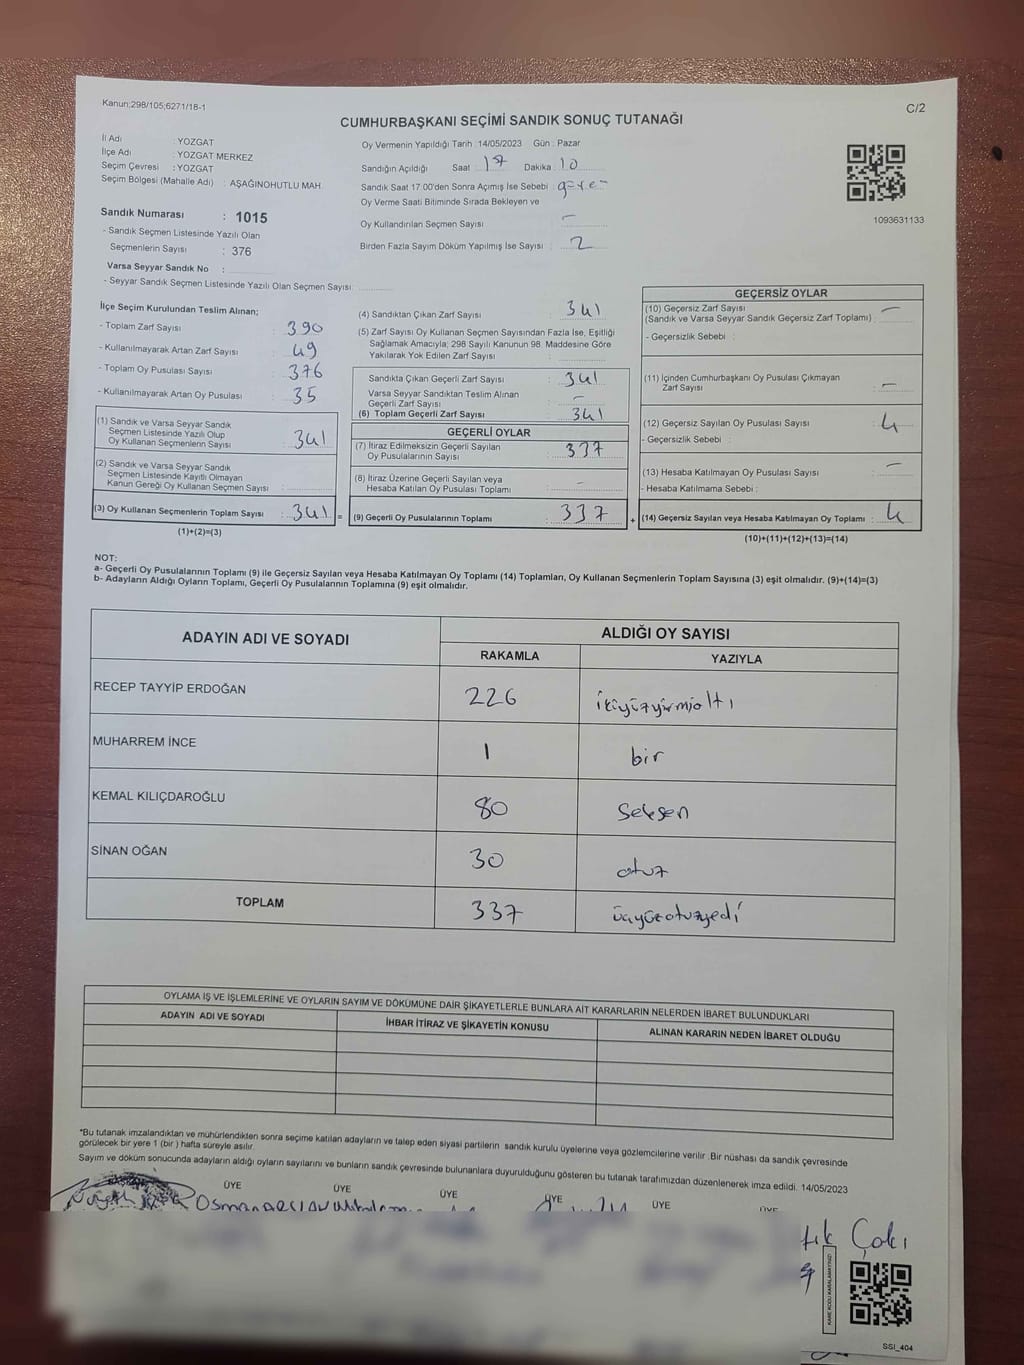 Kanun;298/105;6271/18-1
C/2
CUMHURBAŞKANI SEÇİMİ SANDIK SONUÇ TUTANAĞI
İl Adı : YOZGAT
İlçe Adı : YOZGAT MERKEZ
Seçim Çevresi : YOZGAT
Seçim Bölgesi (Mahalle Adı) : AŞAĞINOHUTLU MAH.
Sandık Numarası : 1015
- Sandık Seçmen Listesinde Yazılı Olan
Seçmenlerin Sayısı : 376
Varsa Seyyar Sandık No :
- Seyyar Sandık Seçmen Listesinde Yazılı Olan Seçmen Sayısı:
Oy Vermenin Yapıldığı Tarih : 14/05/2023 Gün : Pazar
Sandığın Açıldığı Saat : 17 Dakika : 10
Sandık Saat 17.00'den Sonra Açımış İse Sebebi :
Oy Verme Saati Bitiminde Sırada Bekleyen ve
Oy Kullandırılan Seçmen Sayısı : –
Birden Fazla Sayım Döküm Yapılmış İse Sayısı : 2
1093631133
İlçe Seçim Kurulundan Teslim Alınan;
- Toplam Zarf Sayısı : 390
- Kullanılmayarak Artan Zarf Sayısı : 49
- Toplam Oy Pusulası Sayısı : 376
- Kullanılmayarak Artan Oy Pusulası : 35
(1) Sandık ve Varsa Seyyar Sandık
Seçmen Listesinde Yazılı Olup
Oy Kullanan Seçmenlerin Sayısı : 341
(2) Sandık ve Varsa Seyyar Sandık
Seçmen Listesinde Kayıtlı Olmayan
Kanun Gereği Oy Kullanan Seçmen Sayısı :
(3) Oy Kullanan Seçmenlerin Toplam Sayısı : 341
(1)+(2)=(3)
(4) Sandıktan Çıkan Zarf Sayısı : 341
(5) Zarf Sayısı Oy Kullanan Seçmen Sayısından Fazla İse, Eşitliği
Sağlamak Amacıyla; 298 Sayılı Kanunun 98. Maddesine Göre
Yakılarak Yok Edilen Zarf Sayısı :
Sandıkta Çıkan Geçerli Zarf Sayısı : 341
Varsa Seyyar Sandıktan Teslim Alınan
Geçerli Zarf Sayısı : –
(6) Toplam Geçerli Zarf Sayısı : 341
GEÇERLİ OYLAR
(7) İtiraz Edilmeksizin Geçerli Sayılan
Oy Pusulalarının Sayısı : 337
(8) İtiraz Üzerine Geçerli Sayılan veya
Hesaba Katılan Oy Pusulası Toplamı : –
= (9) Geçerli Oy Pusulalarının Toplamı : 337
GEÇERSİZ OYLAR
(10) Geçersiz Zarf Sayısı
(Sandık ve Varsa Seyyar Sandık Geçersiz Zarf Toplamı) : –
- Geçersizlik Sebebi :
(11) İçinden Cumhurbaşkanı Oy Pusulası Çıkmayan
Zarf Sayısı : –
(12) Geçersiz Sayılan Oy Pusulası Sayısı : 4
- Geçersizlik Sebebi :
(13) Hesaba Katılmayan Oy Pusulası Sayısı : –
- Hesaba Katılmama Sebebi :
+ (14) Geçersiz Sayılan veya Hesaba Katılmayan Oy Toplamı : 4
(10)+(11)+(12)+(13)=(14)
NOT:
a- Geçerli Oy Pusulalarının Toplamı (9) ile Geçersiz Sayılan veya Hesaba Katılmayan Oy Toplamı (14) Toplamları, Oy Kullanan Seçmenlerin Toplam Sayısına (3) eşit olmalıdır. (9)+(14)=(3)
b- Adayların Aldığı Oyların Toplamı, Geçerli Oy Pusulalarının Toplamına (9) eşit olmalıdır.
ADAYIN ADI VE SOYADI
ALDIĞI OY SAYISI
RAKAMLA YAZIYLA
RECEP TAYYİP ERDOĞAN 226 ikiyüzyirmialtı
MUHARREM İNCE 1 bir
KEMAL KILIÇDAROĞLU 80 seksen
SİNAN OĞAN 30 otuz
TOPLAM 337 üçyüzotuzyedi
OYLAMA İŞ VE İŞLEMLERİNE VE OYLARIN SAYIM VE DÖKÜMÜNE DAİR ŞİKAYETLERLE BUNLARA AİT KARARLARIN NELERDEN İBARET BULUNDUKLARI
ADAYIN ADI VE SOYADI İHBAR İTİRAZ VE ŞİKAYETİN KONUSU ALINAN KARARIN NEDEN İBARET OLDUĞU
*Bu tutanak imzalandıktan ve mühürlendikten sonra seçime katılan adayların ve talep eden siyasi partilerin sandık kurulu üyelerine veya gözlemcilerine verilir .Bir nüshası da sandık çevresinde
görülecek bir yere 1 (bir ) hafta süreyle asılır.
Sayım ve döküm sonucunda adayların aldığı oyların sayılarını ve bunların sandık çevresinde bulunanlara duyurulduğunu gösteren bu tutanak tarafımızdan düzenlenerek imza edildi. 14/05/2023
ÜYE ÜYE ÜYE ÜYE ÜYE ÜYE
Çakı
KARE KODU KARALAMAYINIZ!
SSI_404